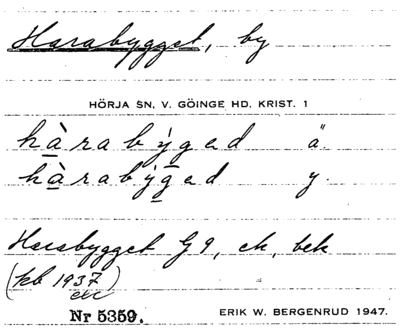 Harabygget, by
HÖRJA SN. V. GÖINGE HD. KRIST. 1
hàrabýgad ä.
hàrabýgad y.
Harabygget G9, ek, bek
(kb 1937)
Nr 5359.
ERIK W. BERGENRUD 1947.